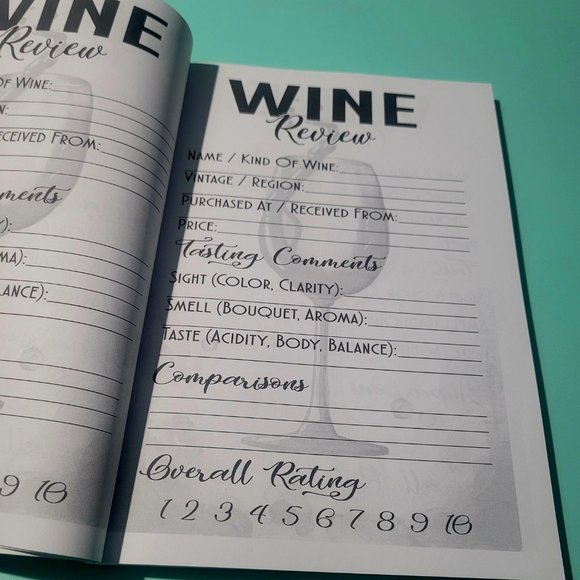 WINE
Review
OF WINE:
N:
ECEIVED FROM:
ments
):
MA):
LANCE):
9 10
WINE
Review
NAME / KIND OF WINE:
VINTAGE / REGION:
PURCHASED AT / RECEIVED FROM:
PRICE:
Tasting Comments
SIGHT (COLOR, CLARITY):
SMELL (BOUQUET, AROMA):
TASTE (ACIDITY, BODY, BALANCE):
Comparisons
Overall Rating
1 2 3 4 5 6 7 8 9 10